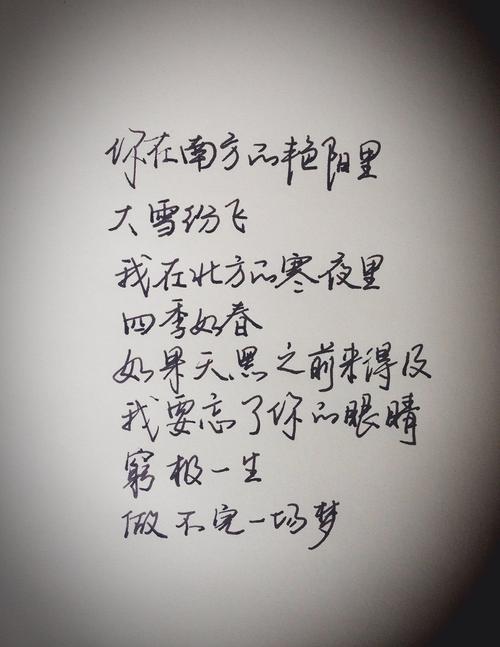 你在南方的艳阳里
大雪纷飞
我在北方的寒夜里
四季如春
如果天黑之前来得及
我要忘了你的眼睛
窮极一生
做不完一场梦